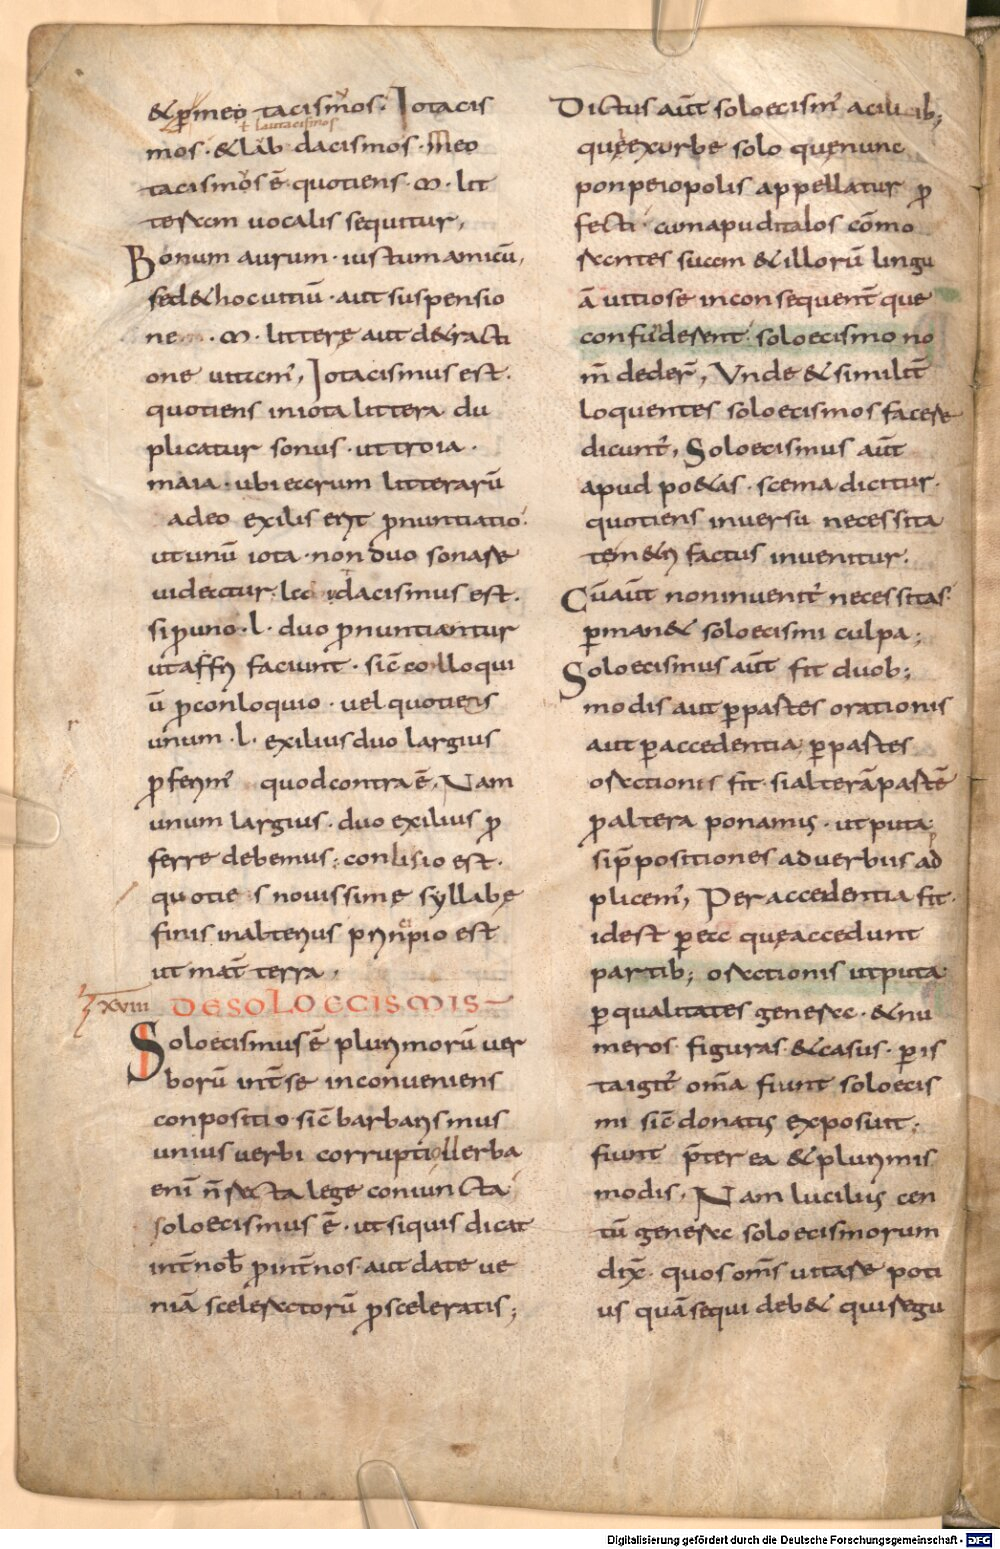 &ṗmeo tacismos· Iotacis
ł lautacismos
mos· &lab dacismos· Meo
tacismos ē· quotiens· m· lit
teram uocalis sequitur,
Bonum aurum· iustum amicū,
sed & hoc uitiū· aut suspensio
ne · m· littere aut detracti
one uitam̅, Iotacismus est·
quotiens in iota littera du
plicatur sonus· ut troia·
maia· ubi earum litterarū
adeo exilis erit ꝓnuntiatio·
ut unū iota· non duo sonare
uideatur· la dacismus est·
si pro uno· l· duo ꝓnuntiantur
ut affri faciunt· sic̄ colloqui
ū ꝓ conloquio· uel quotiens
unum· l· exilius duo largius
ꝓferim̄ quod contra ē, Nam
unum largius· duo exilius ꝓ
ferre debemus; conlisio est·
quotie s nouissimę syllabę
finis in alterius principio est
ut mat̄ terra,
XVIII DE SOLOECISMIS
Soloecismus ē plurimorū uer
borū int̄ se inconueniens
conpositio sic̄ barbarismus
unius uerbi corruptio Uerba
eni̅ n̄ recta lege coniuncta
soloecismus ē· ut siquis dicat
int̄ nob̄ ꝓ int̄ nos· aut date ue
niā sceleratorū ꝓ sceleratis;
Dictus aūt soloecism̄ a cilicib;
quę ex urbe solo quę nunc
ponpeiopolis appellatur ꝓ
fecti· cum apud italos cōmo
rantes suam & illorū lingu
ā uitiose inconsequent̄ que
confunderent· soloecismo no
m̄ deder̄, Unde & similit̄
loquentes soloecismos facere
dicunt̄, Soloecismus aūt
apud po&as· scema dicitur·
quotiens in uersu necessita
te m&ri factus inuenitur·
Cū aūt non inuenit̄ necessitas·
ꝑman& soloecismi culpa;
Soloecismus aūt fit duob;
modis aut ꝑ partes orationis
aut ꝑ accedentia; ꝑ partes
orationis fit· si alterā partē
ꝓ altera ponamus· ut puta·
si p̄positiones aduerbiis ad
plicem̄, Per accedentia fit·
id est ꝑ ea quę accedunt
partib; orationis ut puta·
ꝑ qualitates genera· & nu
meros figuras & casus· ꝑ is
ta igit̄ om̄a fiunt soloecis
mi sic̄ donatus exposuit·
fiunt p̄ter ea & plurimis
modis, Nam lucilius cen
tū genera soloecismorum
dix̄· quos om̄s uitare poti
us quā sequi deb& qui regu